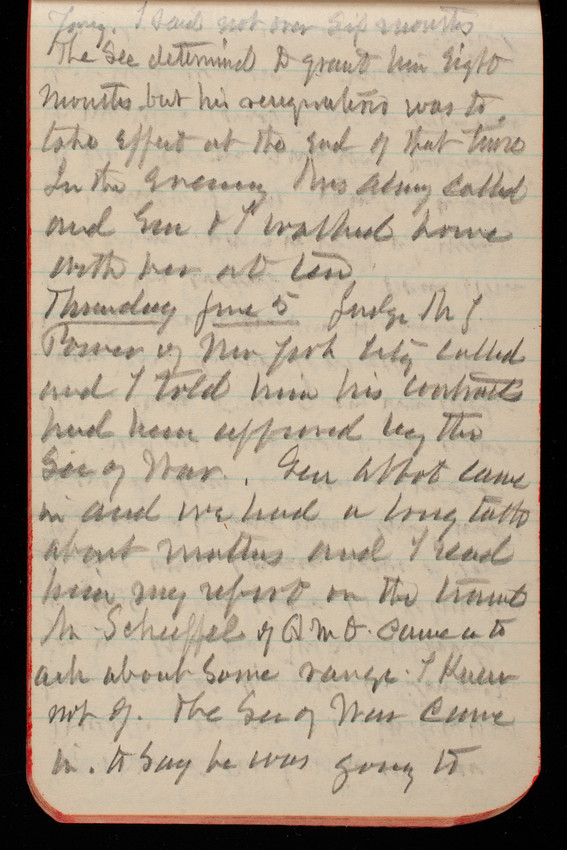 long. I said not over six months
The Sec determined to grant him eight
months but his resignation was to
take effect at the end of that time
In the evening Mrs called
and Gen & I walked home
with her at ten
Thursday June 5 Judge M J
Power of New York City called
and I told him his contract
had been approved by the
Sec of War. Gen Abbot came
in and we had a long talk
about matters and I read
him my report on the
Mr Scheiffel of came in to
ask about some range I knew
not of. The Sec of War came
in. to say he was going to